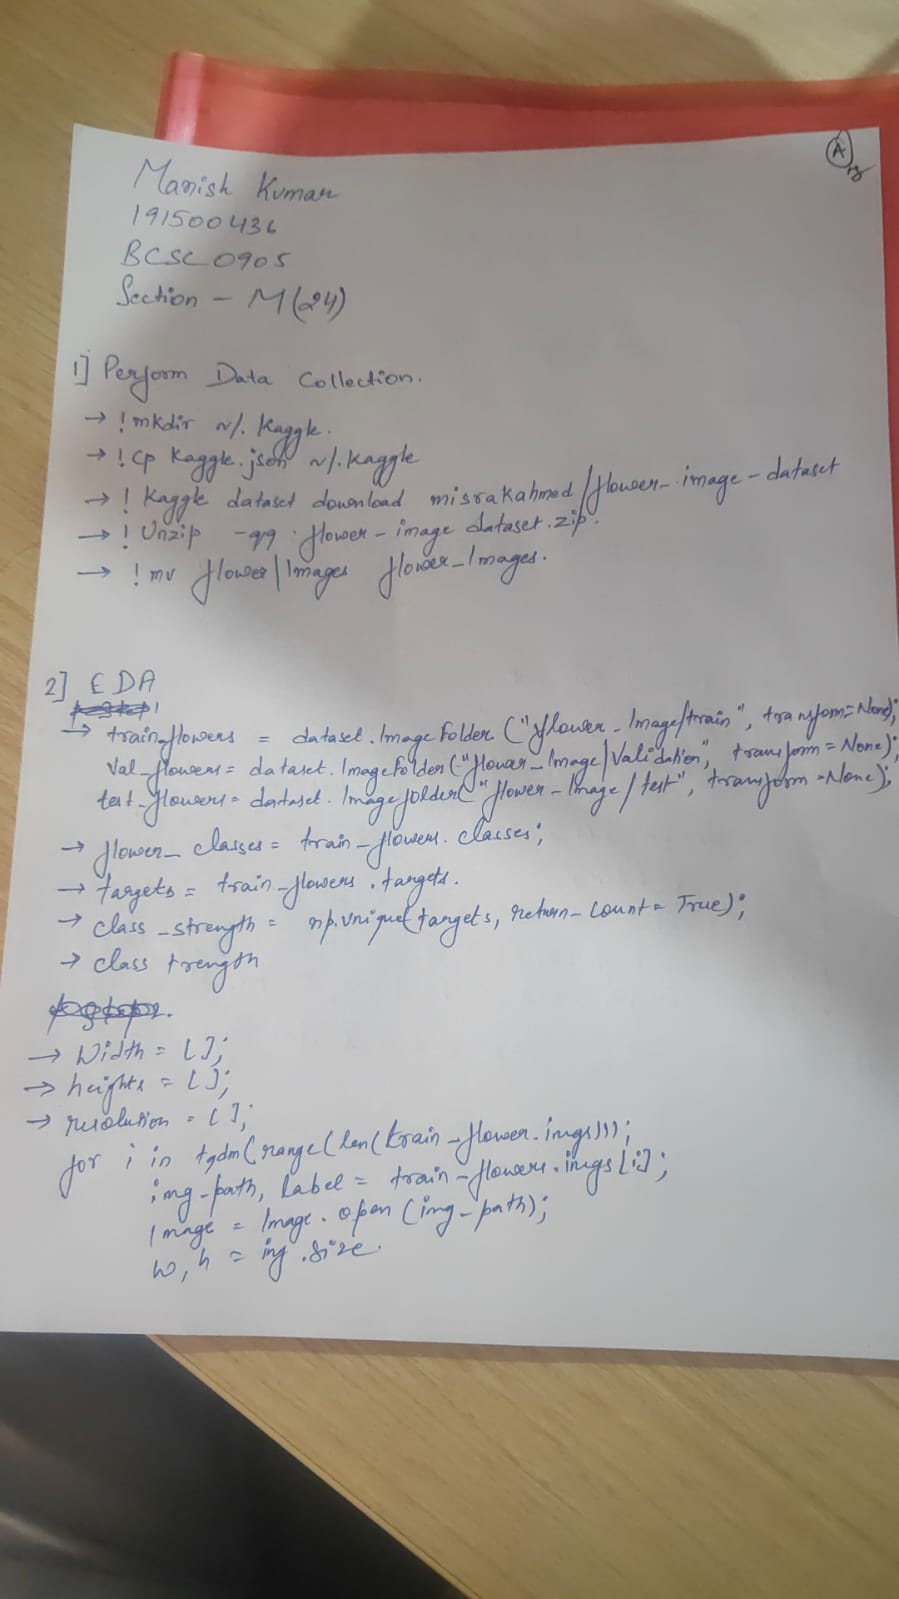 A
Manish Kumar
191500436
BCSC0905
Section - M(24)
1] Perform Data Collection.
→ !mkdir ~/. Kaggle.
→ !cp Kaggle.json ~/.kaggle
→ ! Kaggle dataset download misrakahmed/flower-image-dataset
→ ! Unzip -qq flower-image dataset.zip.
→ ! mv flower/Images flower_Images.
2] EDA
→ train_flowers = dataset.ImageFolder ("flower_Image/train", transform=None);
Val_flowers = dataset.ImageFolder("flower_Image/Validation", transform = None);
test_flowers = dataset. Imagefolder("flower-Image/test", transform=None);
→ flower_classes = train_flowers.classes;
→ targets = train_flowers.targets.
→ class_strength = np.unique(targets, return_count = True);
→ class trength
→ Width = [];
→ heights = [];
→ resolution = [];
for i in tqdm(range(len(train_flower.imgs)));
img-path, label = train-flowers.imgs[i];
Image = Image.open (img-path);
w, h = ing.size.